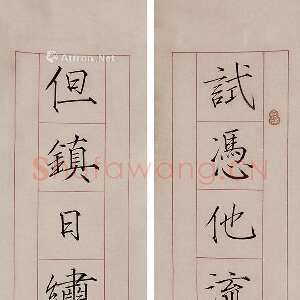 試憑他流
但鎮日繡
Artron.Net
Shufawang.CN